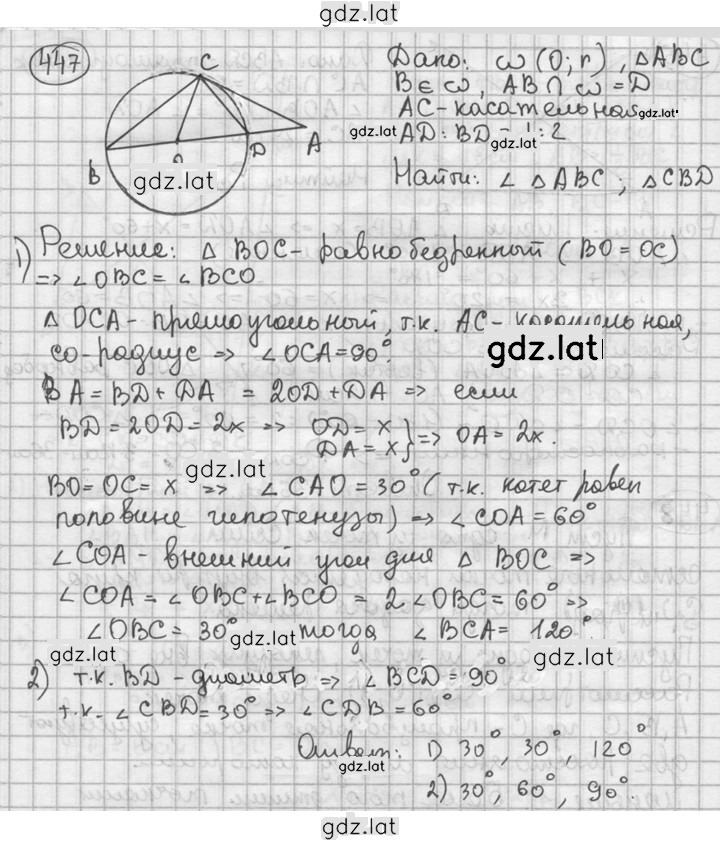 gdz.lat
447
C
B
O
D
A
gdz.lat
Дано: ω (O; r), △ABC
B ∈ ω, AB ∩ ω = D
AC - касательная gdz.lat
gdz.lat AD : BD = 1 : 2
gdz.lat
Найти: ∠ △ABC; △CBD
1) Решение: △ BOC - равнобедренный (BO = OC)
=> ∠OBC = ∠BCO
△ OCA - прямоугольный, т.к. AC - касательная,
CO - радиус => ∠OCA = 90°.
gdz.lat
BA = BD + DA = 2OD + DA => если
BD = 2OD = 2x => OD = x
DA = x } => OA = 2x.
gdz.lat
BO = OC = x => ∠CAO = 30° (т.к. катет равен
половине гипотенузы) => ∠COA = 60°
∠COA - внешний угол для △ BOC =>
∠COA = ∠OBC + ∠BCO = 2∠OBC = 60° =>
∠OBC = 30° тогда ∠BCA = 120°.
gdz.lat gdz.lat gdz.lat
2) т.к. BD - диаметр => ∠BCD = 90°
т.к. ∠CBD = 30° => ∠CDB = 60°
Ответ: 1) 30°, 30°, 120°
gdz.lat
2) 30°, 60°, 90°.
gdz.lat